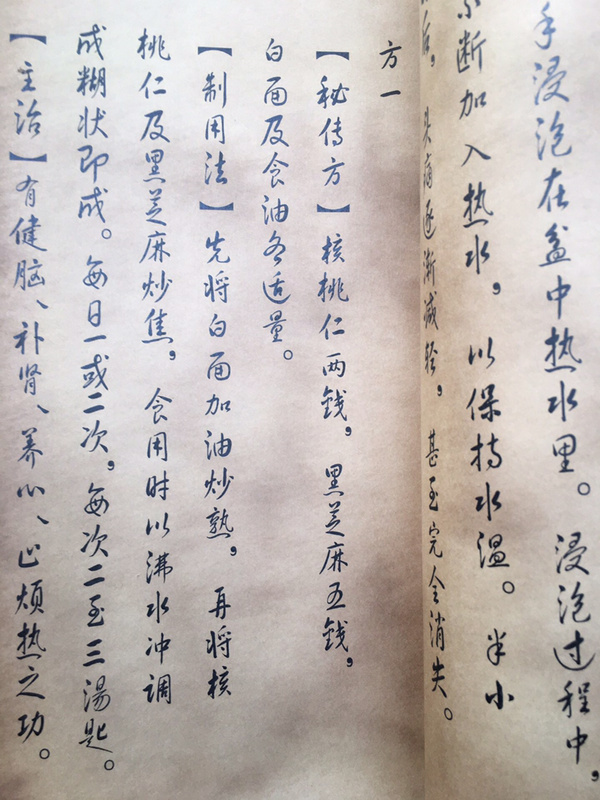 手浸泡在盆中热水里。浸泡过程中，
不断加入热水，以保持水温。半小
后，头痛逐渐减轻，甚至完全消失。
方一
【秘传方】核桃仁两钱，黑芝麻五钱，
白面及食油各适量。
【制用法】先将白面加油炒熟，再将核
桃仁及黑芝麻炒焦，食用时以沸水冲调
成糊状即成。每日一或二次，每次二至三汤匙。
【主治】有健脑、补肾、养心、止烦热之功。